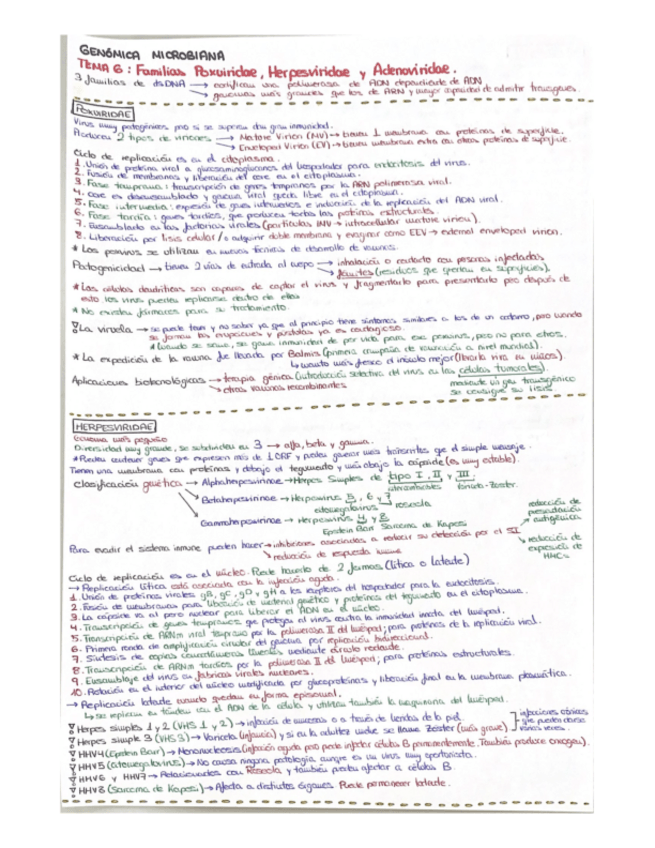 GENÓMICA MICROBIANA
TEMA 6: Familias Poxviridae, Herpesviridae y Adenoviridae.
3 familias de dsDNA → codifican una polimerasa de ADN dependiente de ADN
→ genomas más grandes que los de ARN y mayor capacidad de admitir transgenes.
POXVIRIDAE
Virus muy patogénicos pero si se supera dan gran inmunidad.
Producen 2 tipos de viriones → Mature Virion (MV) → tienen 1 membrana con proteínas de superficie.
→ Enveloped Virion (EV) → tienen membrana extra con otras proteínas de superficie
Ciclo de replicación es en el citoplasma.
1. Unión de proteína viral a glucosaminoglicanos del hospedador para endocitosis del virus.
2. Fusión de membranas y liberación del core en el citoplasma.
3. Fase temprana: transcripción de genes tempranos por la ARN polimerasa viral.
4. Core es desensamblado y genoma viral queda libre en el citoplasma.
5. Fase intermedia: expresión de genes intermedios e inducción de la replicación del ADN viral.
6. Fase tardía: genes tardíos, que producen todas las proteínas estructurales.
7. Ensamblado en las factorías virales (partículas IMV → intracellular mature virion).
8. Liberación por lisis celular/o adquirir doble membrana y exocytar como EEV → external enveloped virion.
* Los poxvirus se utilizan en nuevas técnicas de desarrollo de vacunas.
Patogenicidad → tienen 2 vías de entrada al cuerpo → inhalación o contacto con personas infectadas
→ fómites (residuos que quedan en superficies).
* Las células dendríticas son capaces de captar el virus y fragmentarlo para presentarlo pero después de
esto los virus pueden replicarse dentro de ellas
* No existen fármacos para su tratamiento.
La viruela → se puede tener y no saber ya que al principio tiene síntomas similares a los de un catarro, pero cuando
se forman las erupciones y pústulas ya es contagioso.
* Cuando se sane, se gana inmunidad de por vida para ese poxvirus, pero no para otros.
* La expedición de la vacuna fue llevada por Balmis (primera campaña de vacunación a nivel mundial).
↳ cuanto más fresco el inóculo mejor (llevarla viva en niños)
Aplicaciones biotecnológicas → terapia génica (introducción selectiva del virus en las células tumorales).
→ otras vacunas recombinantes
mediante un gen transgénico
se consigue su lisis
HERPESVIRIDAE
Genoma más pequeño
Diversidad muy grande, se subdividen en 3 → alfa, beta y gamma.
* Pueden contener genes que expresen más de 1 ORF y pueden generar más transcritos que el simple mensaje.
Tienen una membrana con proteínas y debajo el tegumento y más abajo la cápside (es muy estable).
Clasificación genética → Alphaherpesvirinae → Herpes Simples de tipo I, II y III
→ Betaherpesvirinae → Herpesvirus 5, 6 y 7
citomegalovirus roseola
→ Gammaherpesvirinae → Herpesvirus 4 y 8
Epstein Barr Sarcoma de Kaposi
Para evadir el sistema inmune pueden hacer → inhibiciones asociadas a reducir su detección por el SI
→ reducción de respuesta inmune
reducción de
presentación
antigénica
reducción de
exposición de
MHCs
Ciclo de replicación es en el núcleo. Puede hacerlo de 2 formas (lítica o latente)
→ Replicación lítica está asociada con la infección aguda.
1. Unión de proteínas virales gB, gC, gD y gH a los receptores del hospedador para la endocitosis.
2. Fusión de membranas para liberación de material genético y proteínas del tegumento en el citoplasma.
3. La cápside va al poro nuclear para liberar el ADN en el núcleo.
4. Transcripción de genes tempranos que protegen al virus contra la inmunidad innata del huésped.
5. Transcripción de ARNm viral temprano por la polimerasa II del huésped; para proteínas de la replicación viral.
6. Primera ronda de amplificación circular del genoma por replicación bidireccional.
7. Síntesis de copias concatenadas lineales mediante círculo rodante.
8. Transcripción de ARNm tardíos por la polimerasa II del huésped; para proteínas estructurales.
9. Ensamblaje del virus en fábricas virales nucleares.
10. Rotación en el interior del núcleo modificada por glucoproteínas y liberación final en la membrana plasmática.
→ Replicación latente cuando quedan en forma episomal.
↳ se replican en tándem con el ADN de la célula y utilizan también la maquinaria del huésped.
Herpes simples 1 y 2 (VHS 1 y 2) → infección de mucosas o a través de heridas de la piel.
Herpes simple 3 (VHS 3) → Varicela (infancia) y si es en la adultez vuelve se llama Zoster (más grave)
HHV4 (Epstein Barr) → Mononucleosis (infección aguda pero puede infectar células B permanentemente. También produce oncogen).
HHV5 (Citomegalovirus) → No causa ninguna patología aunque es un virus muy oportunista.
HHV6 y HHV7 → Relacionados con Roseola y también pueden afectar a células B.
HHV8 (Sarcoma de Kaposi) → Afecta a distintos órganos. Puede permanecer latente.